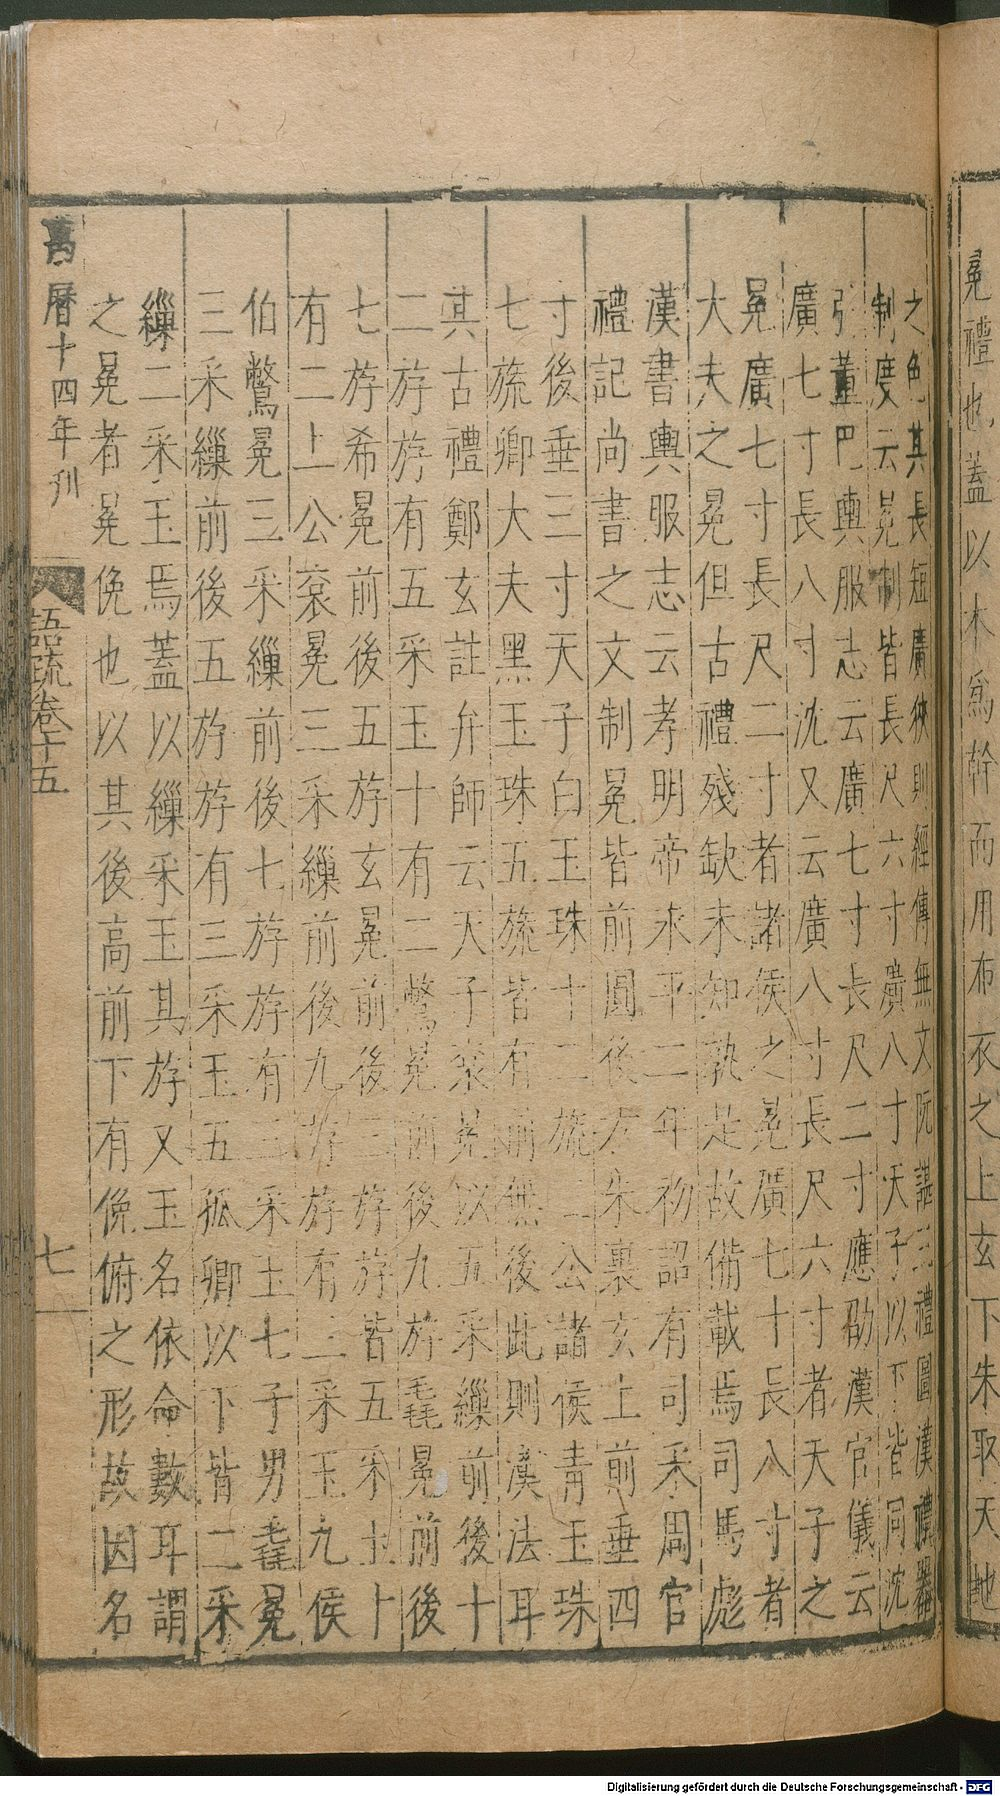 冕禮也蓋以木爲幹而用布衣之上玄下朱取天地
之色其長短廣狹則經傳無文阮諶三禮圖漢禮器
制度云冕制皆長尺六寸廣八寸天子以下皆同沈
引董巴輿服志云廣七寸長尺二寸應劭漢官儀云
廣七寸長八寸沈又云廣八寸長尺六寸者天子之
冕廣七寸長尺二寸者諸侯之冕廣七十長八寸者
大夫之冕但古禮殘缺未知孰是故備載焉司馬彪
漢書輿服志云孝明帝永平二年初詔有司采周官
禮記尚書之文制冕皆前圓後方朱裏玄上前垂四
寸後垂三寸天子白玉珠十二旒三公諸侯青玉珠
七旒卿大夫黑玉珠五旒皆有前無後此則漢法耳
其古禮鄭玄註弁師云天子袞冕以五采繅前後十
二斿斿有五采玉十有二鷩冕前後九斿毳冕前後
七斿希冕前後五斿玄冕前後三斿斿皆五采玉十
有二上公袞冕三采繅前後九斿斿有三采玉九侯
伯鷩冕三采繅前後七斿斿有三采玉七子男毳冕
三采繅前後五斿斿有三采玉五孤卿以下皆二采
繅二采玉焉蓋以繅采玉其斿又玉名依命數耳謂
之冕者冕俛也以其後高前下有俛俯之形故因名
萬曆十四年刊
語疏卷十五
七
Digitalisierung gefördert durch die Deutsche Forschungsgemeinschaft - DFG